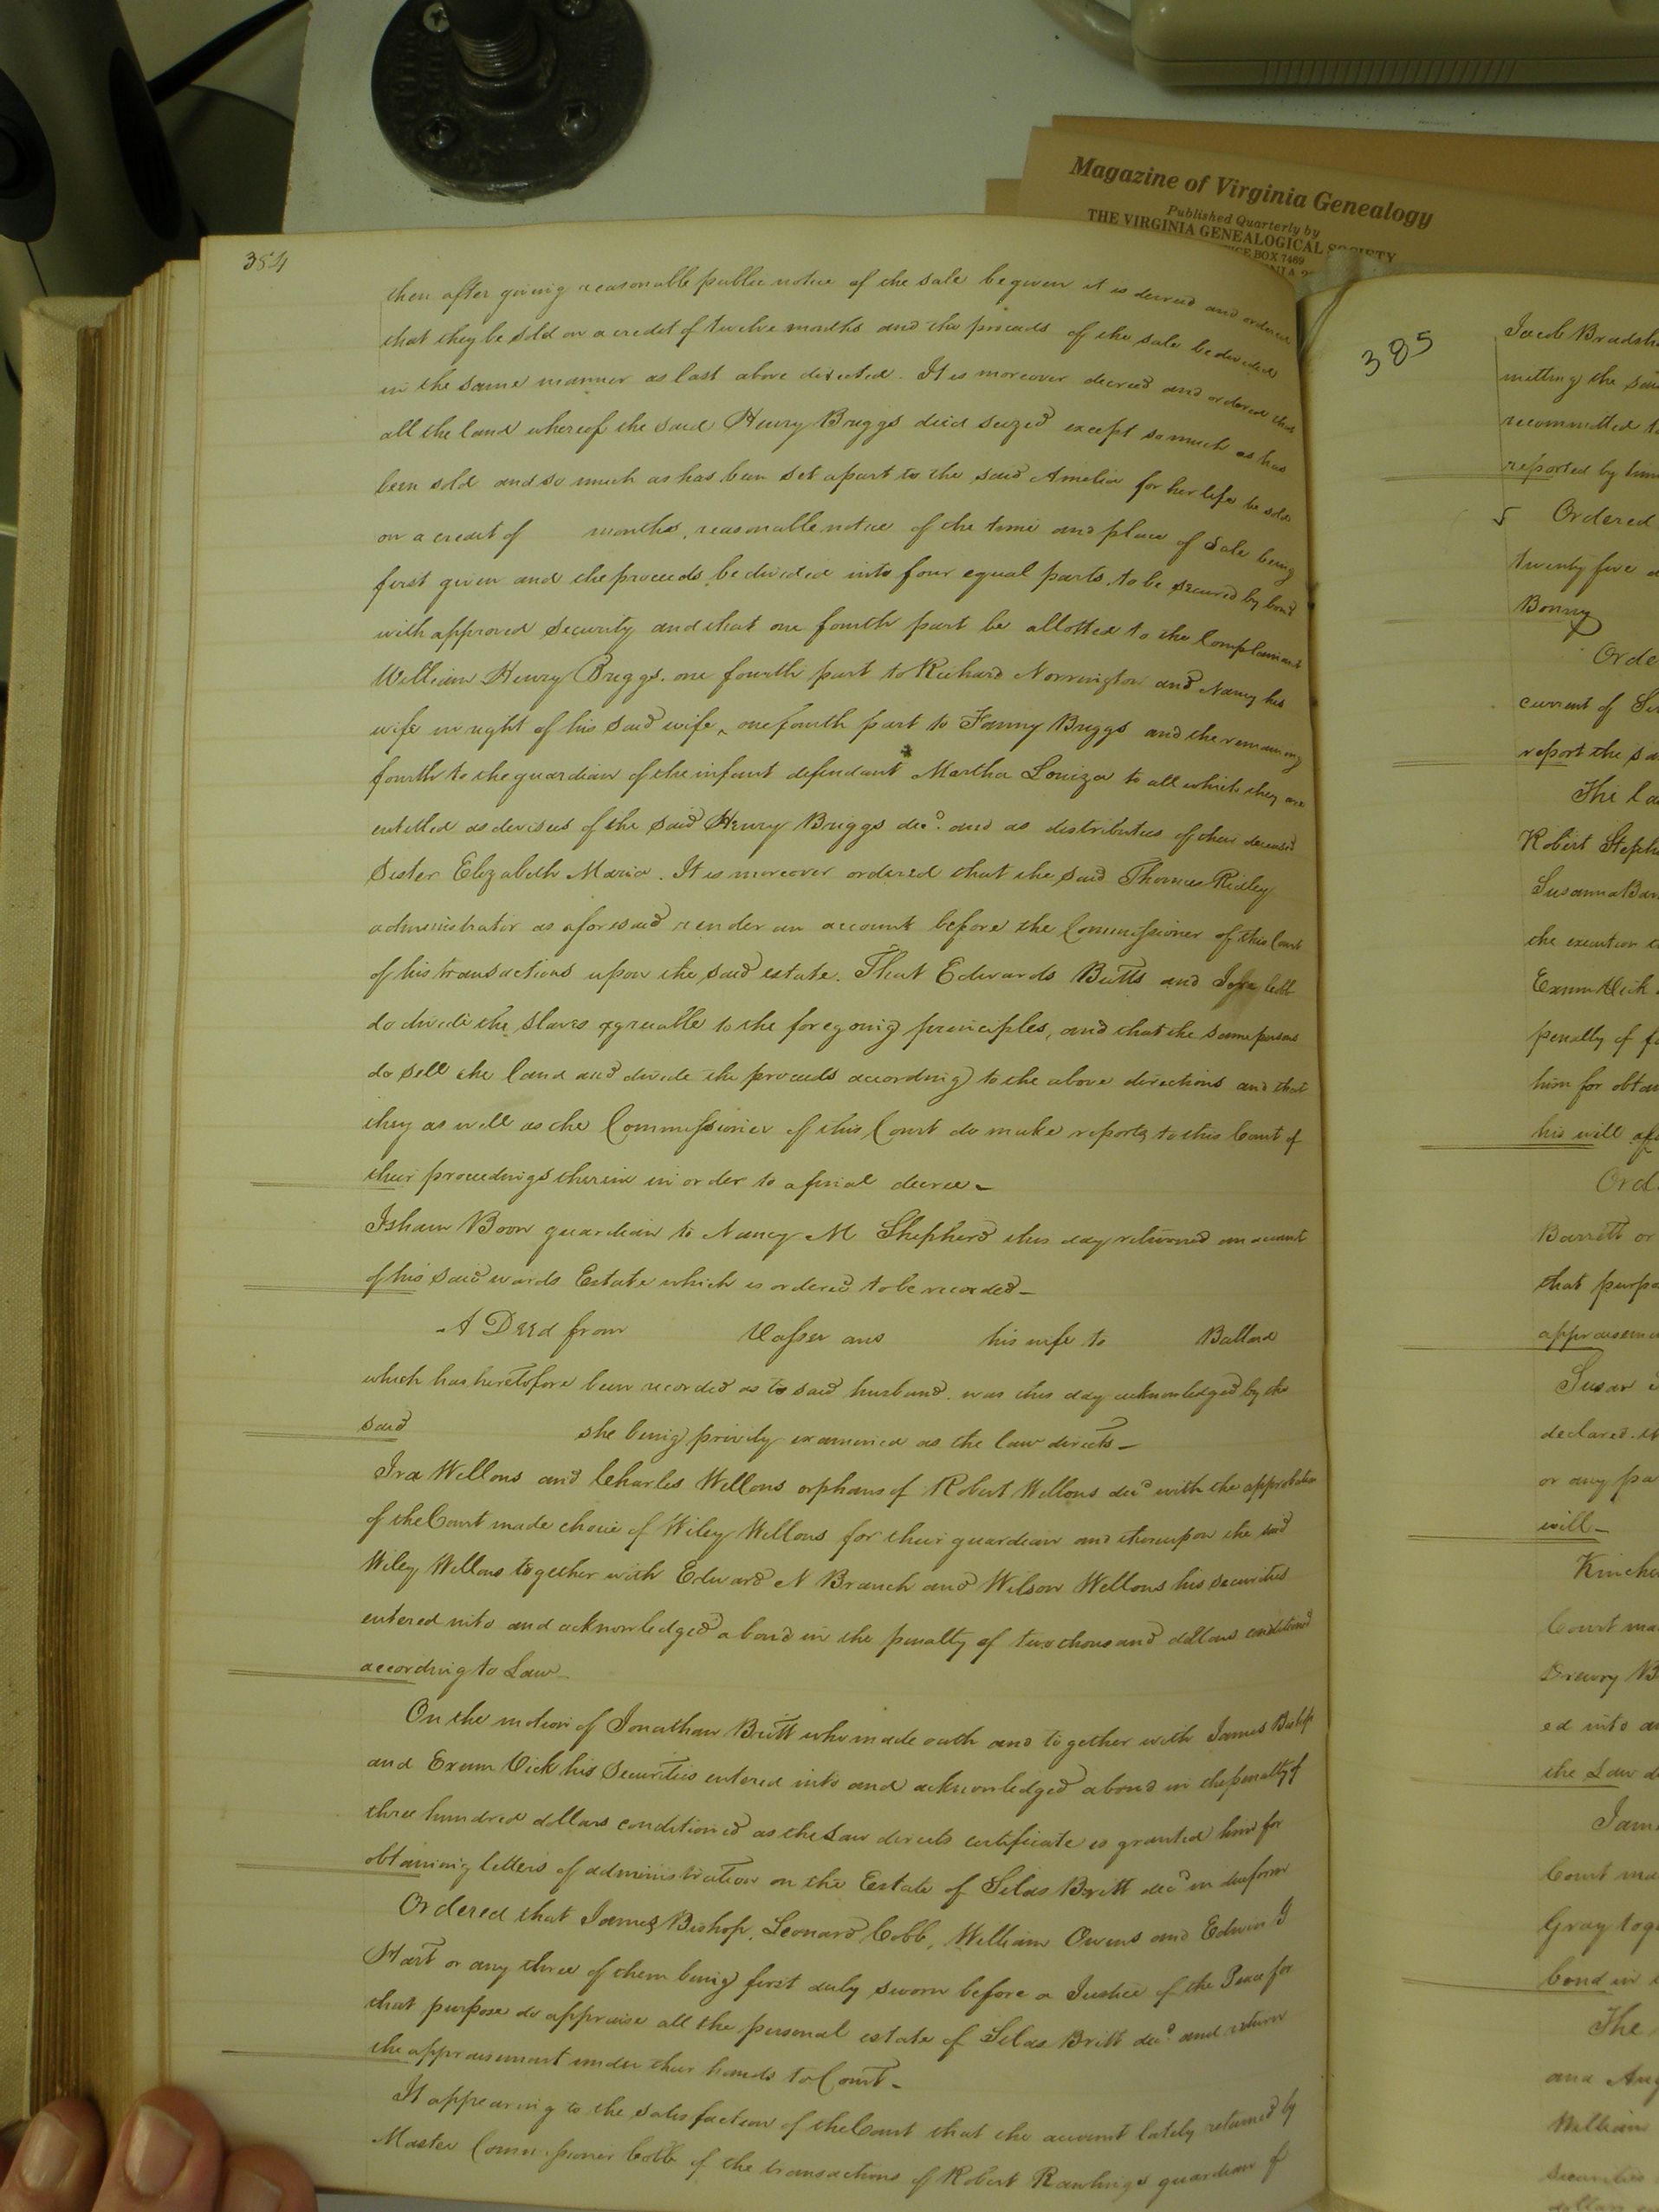 Magazine of Virginia Genealogy
Published Quarterly by
THE VIRGINIA GENEALOGICAL SOCIETY
BOX 7469
384
then after giving reasonable public notice of the sale be given it is decreed and ordered
that they be sold on a credit of twelve months and the proceeds of the sale be divided
in the same manner as last above directed. It is moreover decreed and ordered that
all the land whereof the said Henry Briggs died seized except so much as has
been sold and so much as has been set apart to the said Amelia for her life be sold
on a credit of months, reasonable notice of the time and place of Sale being
first given and the proceeds be divided into four equal parts, to be secured by bond
with approved Security and that one fourth part be allotted to the Complainant
William Henry Briggs. one fourth part to Richard Norrington and Nancy his
wife in right of his said wife, one fourth part to Fanny Briggs and the remaining
fourth to the guardian of the infant defendant Martha Louiza to all which they are
entitled as devisees of the said Henry Briggs decd. and as distributees of their deceased
Sister Elizabeth Maria. It is moreover ordered that the said Thomas Ridley
administrator as aforesaid render an account before the Commissioner of this Court
of his transactions upon the said estate. That Edwards Butts and
do divide the Slaves agreeable to the foregoing principles, and that the same persons
do sell the land and divide the proceeds according to the above directions and that
they as well as the Commissioner of this Court do make reports to this Court of
their proceedings therein in order to a final decree -
Isham Boon guardian to Nancy M Shepherd this day returned an account
of his said wards Estate which is ordered to be recorded -
A Deed from Vasser and his wife to Ballard
which has heretofore been recorded as to said husband. was this day acknowledged by the
said she being privily examined as the law directs -
Ira Wellons and Charles Wellons orphans of Robert Wellons decd with the approbation
of the Court made choice of Wiley Wellons for their guardian and thereupon the said
Wiley Wellons together with Edward N Branch and Wilson Wellons his securities
entered into and acknowledged a bond in the penalty of two thousand dollars conditioned
according to Law -
On the motion of Jonathan Britt who made oath and together with James Bishop
and Exum Vick his Securities entered into and acknowledged a bond in the penalty of
three hundred dollars conditioned as the Law directs certificate is granted him for
obtaining letters of administration on the Estate of Silas Britt decd in due form
Ordered that James Bishop, Leonard Cobb, William Owens and Edwin G
Hart or any three of them being first duly sworn before a Justice of the Peace for
that purpose do appraise all the personal estate of Silas Britt decd. and return
the appraisement under their hands to Court -
It appearing to the satisfaction of the Court that the account lately returned by
Master Commissioner Cobb of the transactions of Robert Rawlings guardian of
385
Jacob Bradsh
mitting the said
recommitted t
reported by him
5 Ordered
twenty five
Bonny
Orde
current of
report the sa
The la
Robert Steph
Susanna Bar
the execution
Exum Vick
penalty of f
him for obtai
his will af
Ord
Barrett or
that purpo
appraiseme
Susan
declared
or any pa
will -
Kinche
Court ma
Drewry B
ed into a
the Law d
Jam
Court ma
Gray tog
bond in
The
and Aug
William
Securities
dollars